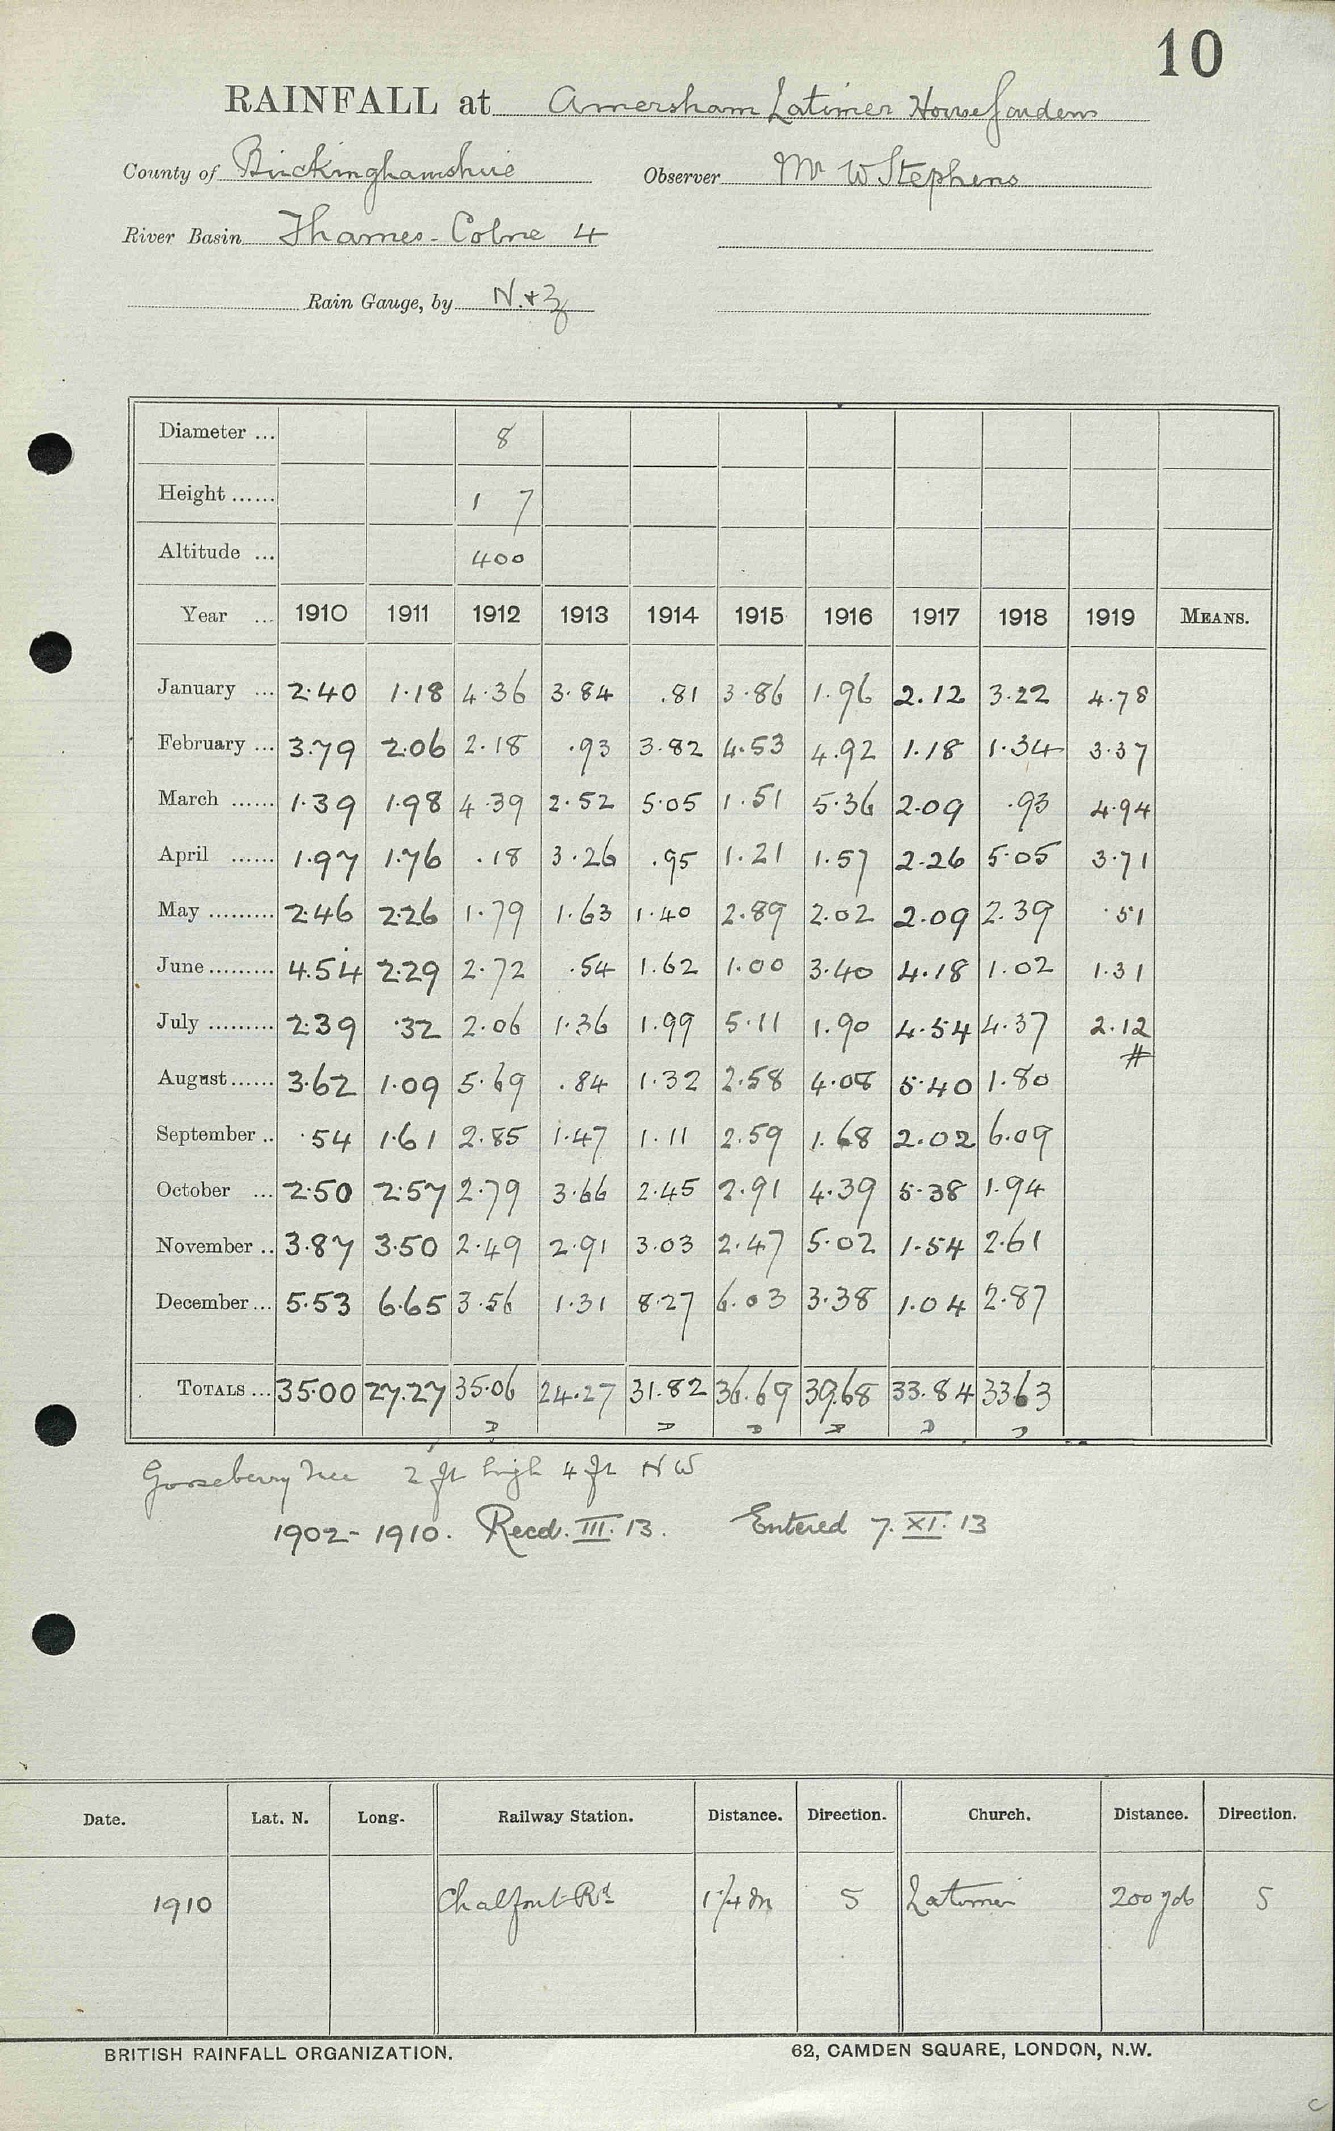 10
RAINFALL at Amersham Latimer House Gardens
County of Buckinghamshire Observer Mr W Stephens
River Basin Thames - Colne 4
Rain Gauge, by N. & Z
Diameter ... 8
Height ...... 1 7
Altitude ... 400
Year ... 1910 1911 1912 1913 1914 1915 1916 1917 1918 1919 MEANS.
January ... 2.40 1.18 4.36 3.84 .81 3.86 1.96 2.12 3.22 4.78
February ... 3.79 2.06 2.18 .93 3.82 4.53 4.92 1.18 1.34 3.37
March ...... 1.39 1.98 4.39 2.52 5.05 1.51 5.36 2.09 .93 4.94
April ...... 1.97 1.76 .18 3.26 .95 1.21 1.57 2.26 5.05 3.71
May ......... 2.46 2.26 1.79 1.63 1.40 2.89 2.02 2.09 2.39 .51
June ......... 4.54 2.29 2.72 .54 1.62 1.00 3.40 4.18 1.02 1.31
July ......... 2.39 .32 2.06 1.36 1.99 5.11 1.90 4.54 4.37 2.12
#
August ...... 3.62 1.09 5.69 .84 1.32 2.58 4.08 5.40 1.80
September .. .54 1.61 2.85 1.47 1.11 2.59 1.68 2.02 6.09
October ... 2.50 2.57 2.79 3.66 2.45 2.91 4.39 5.38 1.94
November .. 3.87 3.50 2.49 2.91 3.03 2.47 5.02 1.54 2.61
December ... 5.53 6.65 3.56 1.31 8.27 6.03 3.38 1.04 2.87
TOTALS ... 35.00 27.27 35.06 24.27 31.82 36.69 39.68 33.84 33.63
D D D D D D
Gooseberry tree 2 ft high 4 ft NW
1902 - 1910. Recd. III. 13. Entered 7. XI. 13
Date. Lat. N. Long. Railway Station. Distance. Direction. Church. Distance. Direction.
1910 Chalfont Rd 1 1/4 m S Latimer 200 yds S
BRITISH RAINFALL ORGANIZATION. 62, CAMDEN SQUARE, LONDON, N.W.
C